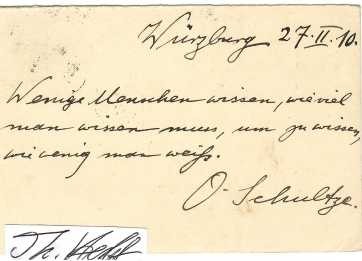 Würzburg 27.II.10.
Wenige Menschen wissen, wie viel
man wissen muss, um zu wissen,
wie wenig man weiß.
O. Schultze.
Th.